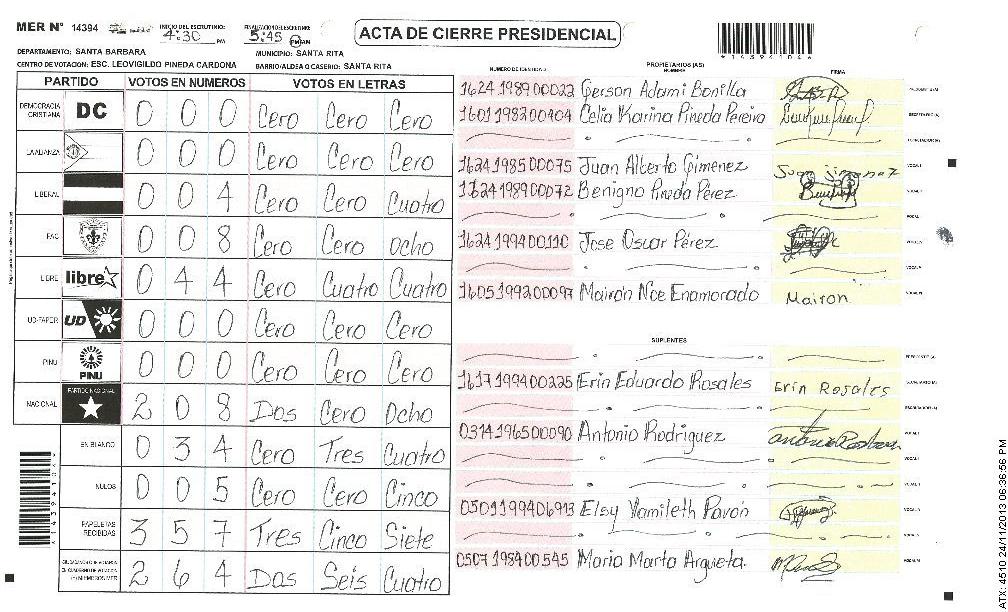 MER N° 14394 INICIO DEL ESCRUTINIO: 4:30 PM FINALIZACION DEL ESCRUTINIO: 5:45 PM/AM
ACTA DE CIERRE PRESIDENCIAL
DEPARTAMENTO: SANTA BARBARA MUNICIPIO: SANTA RITA
CENTRO DE VOTACION: ESC. LEOVIGILDO PINEDA CARDONA BARRIO/ALDEA O CASERIO: SANTA RITA
PARTIDO VOTOS EN NUMEROS VOTOS EN LETRAS
DEMOCRACIA CRISTIANA DC 0 0 0 Cero Cero Cero
LA ALIANZA 0 0 0 Cero Cero Cero
LIBERAL 0 0 4 Cero Cero Cuatro
PAC 0 0 8 Cero Cero Ocho
LIBRE libre 0 4 4 Cero Cuatro Cuatro
UD-FAPER UD 0 0 0 Cero Cero Cero
PINU PINU 0 0 0 Cero Cero Cero
NACIONAL PARTIDO NACIONAL 2 0 8 Dos Cero Ocho
EN BLANCO 0 3 4 Cero Tres Cuatro
NULOS 0 0 5 Cero Cero Cinco
PAPELETAS RECIBIDAS 3 5 7 Tres Cinco Siete
2 6 4 Dos Seis Cuatro
PROPIETARIOS (AS)
NUMERO DE IDENTIDAD NOMBRE FIRMA
1624 1989 00022 Gerson Adami Bonilla
1601 1983 00404 Celia Karina Pineda Pereira
1624 1985 00075 Juan Alberto Gimenez Juan Jimenez
1624 1989 00072 Benigno Pineda Pérez
1624 1994 00110 Jose Oscar Pérez
1605 1992 00097 Mairon Noe Enamorado Mairon
SUPLENTES
1617 1994 00225 Erin Eduardo Rosales Erin Rosales
0314 1965 00090 Antonio Rodriguez
0501 1994 06913 Elsy Yamileth Pavon
0507 1984 00545 Maria Marta Argueta
ATX: 4510 24/11/2013 06:36:56 PM